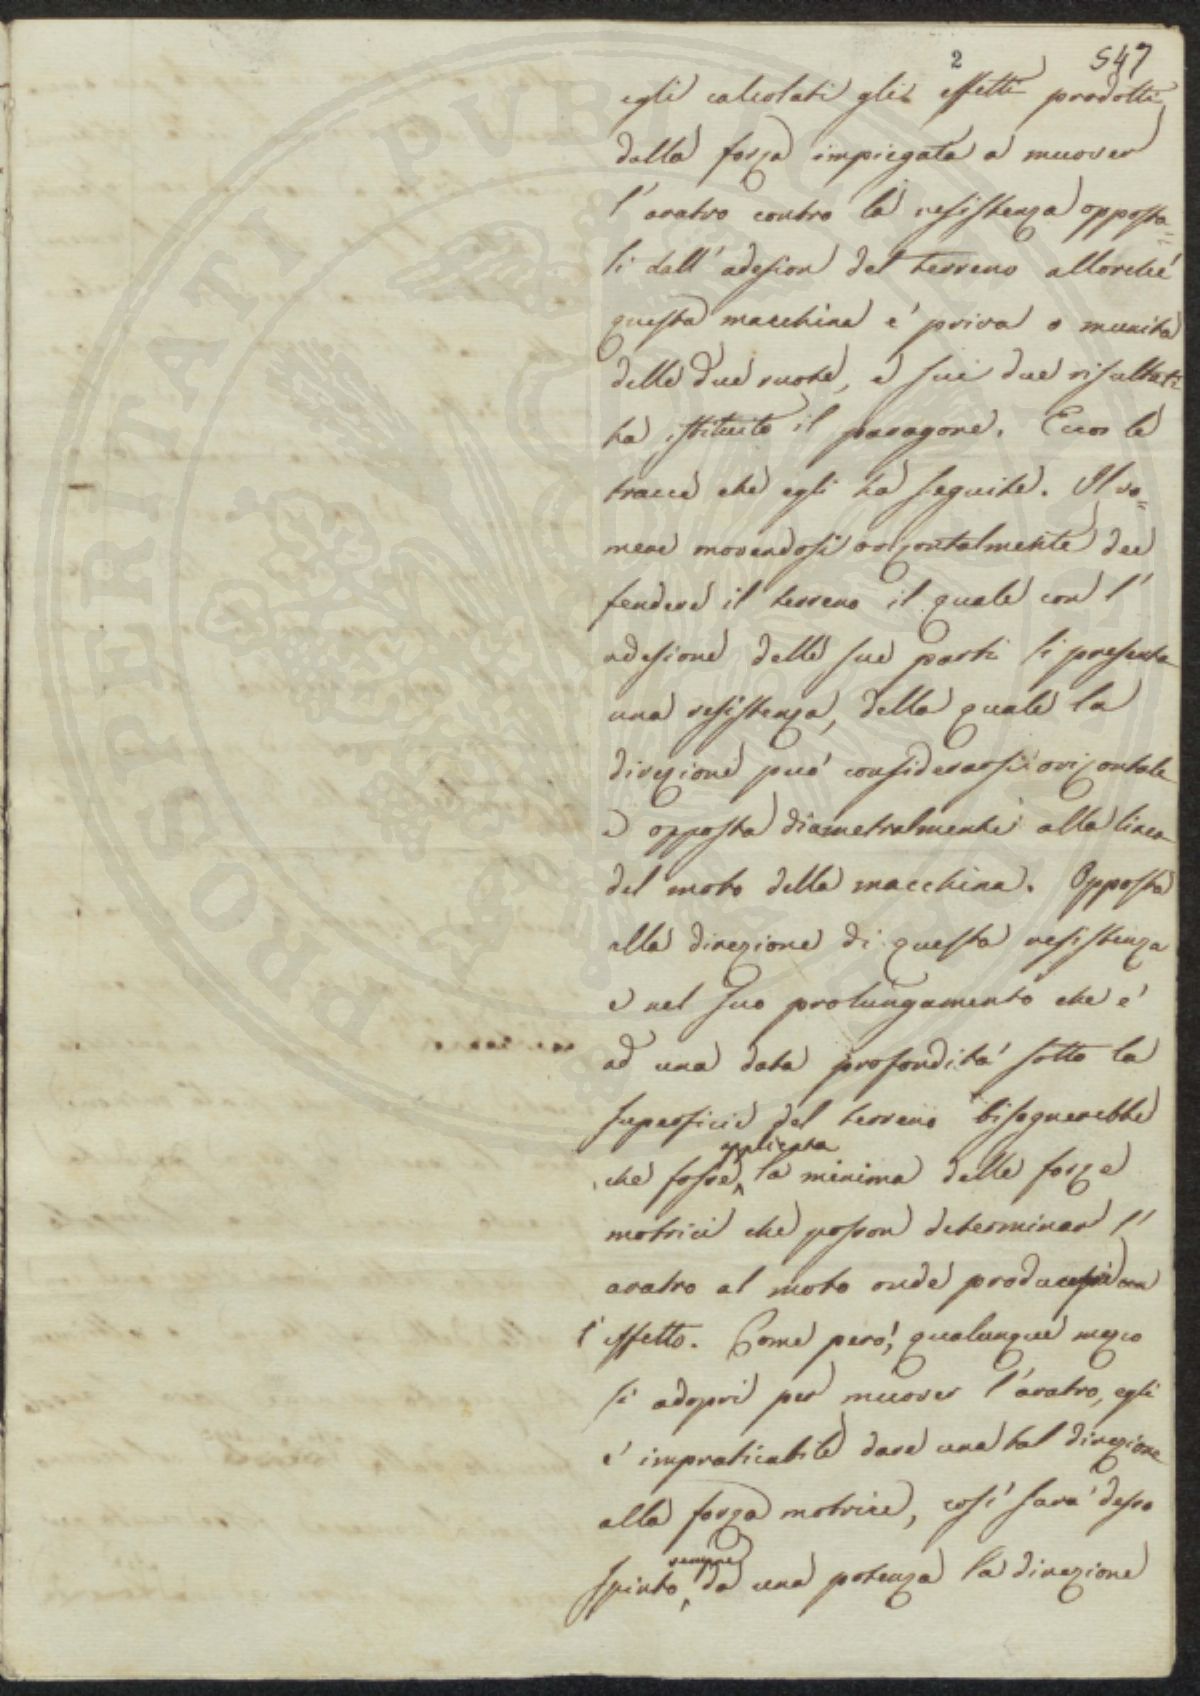 2 547
egli calcolati gli effetti prodotti
dalla forza impiegata a muover
l'aratro contro la resistenza opposta=
li dall'adesion del terreno allorché
questa macchina è priva o munita
delle due ruote, e sui due risultati
ha istituito il paragone. Ecco le
tracce che egli ha seguite. Il vo=
mere movendosi orizontalmente dee
fendere il terreno il quale con l'
adesione delle sue parti li presenta
una resistenza, della quale la
direzione può considerarsi orizontale
e opposta diametralmente alla linea
del moto della macchina. Opposta
alla direzione di questa resistenza
e nel suo prolungamento che è
ad una data profondità sotto la
superficie del terreno bisognerebbe
che fosse applicata la minima delle forze
motrici che posson determinar l'
aratro al moto onde
l'effetto. Come però, qualunque mezo
si adopri per muover l'aratro, egli
è impraticabile dare una tal direzione
alla forza motrice, così sarà desso
spinto sempre da una potenza la direzione
PROSPERITATI PVBLICAE